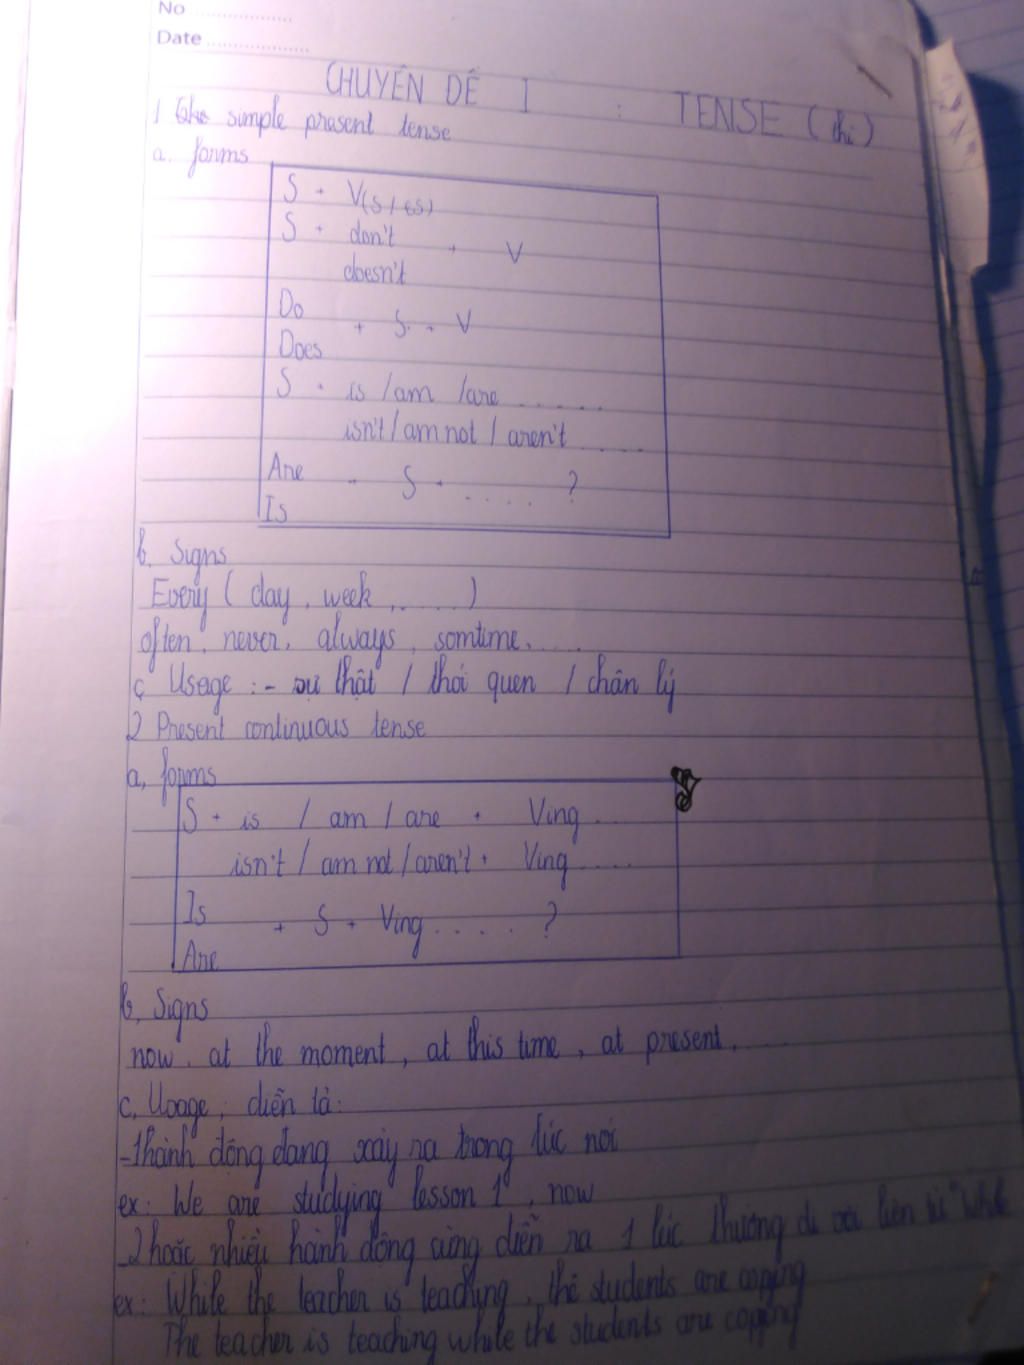 No
Date
CHUYÊN ĐỀ I : TENSE ( thì )
1 simple present tense
a. forms
S + V(s/es)
S + don't + V
doesn't
Do + S + V
Does
S + is / am / are .....
isn't / am not / aren't ....
Are + S + .... ?
Is
b. Signs
Every ( day, week, ..... )
often, never, always, somtime, ....
c Usage : - sự thật / thói quen / chân lý
2 Present continuous tense
a, forms
S + is / am / are + Ving ...
isn't / am not / aren't + Ving ....
Is + S + Ving .... ?
Are
b, Signs
now, at the moment, at this time, at present, ....
c, Usage; diễn tả:
- 1 hành động đang xảy ra trong lúc nói
ex: We are studying lesson 1 , now
- 2 hoặc nhiều hành động cùng diễn ra 1 lúc thường đi với liên từ "While
ex: While the teacher is teaching, the students are copying
The teacher is teaching while the students are copying